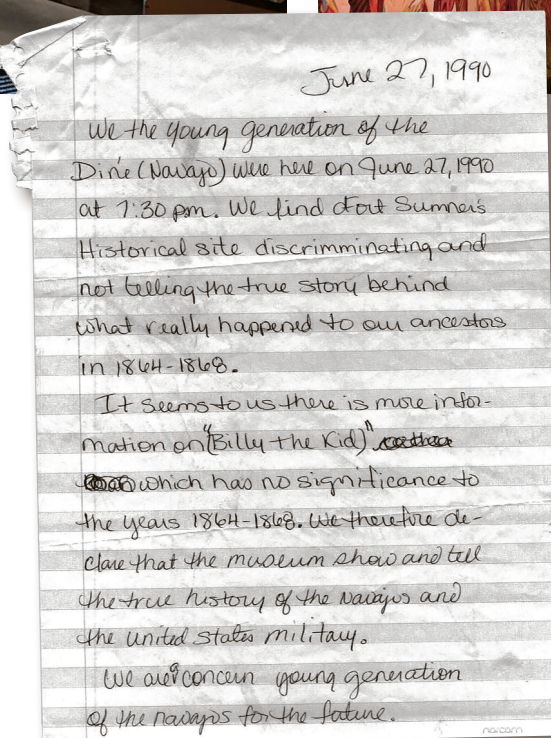 June 27, 1990
We the young generation of the
Diné (Navajo) were here on June 27, 1990
at 7:30 pm. We find Fort Sumner's
Historical site discrimminating and
not telling the true story behind
what really happened to our ancestors
in 1864-1868.
It seems to us there is more infor-
mation on "(Billy the Kid)"
which has no significance to
the years 1864-1868. We therefore de-
clare that the museum show and tell
the true history of the Navajos and
the United States military.
We are a concern young generation
of the navajos for the future.